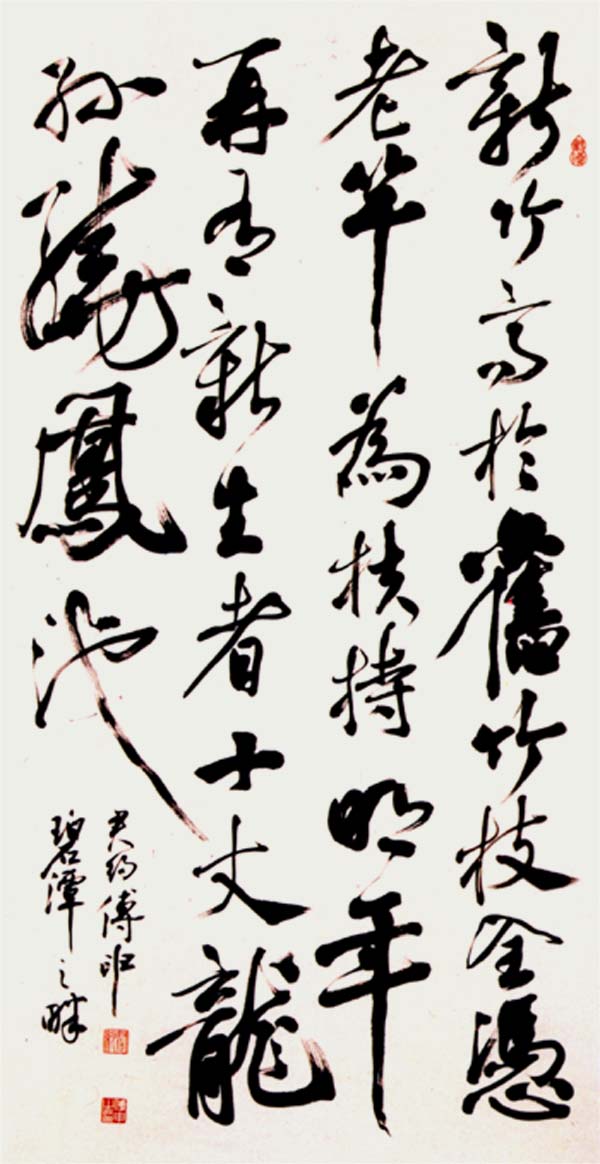 新竹高於舊竹枝全憑
老竿為扶持明年
再有新生者十丈龍
孫繞鳳池
君約傅申
碧潭之畔